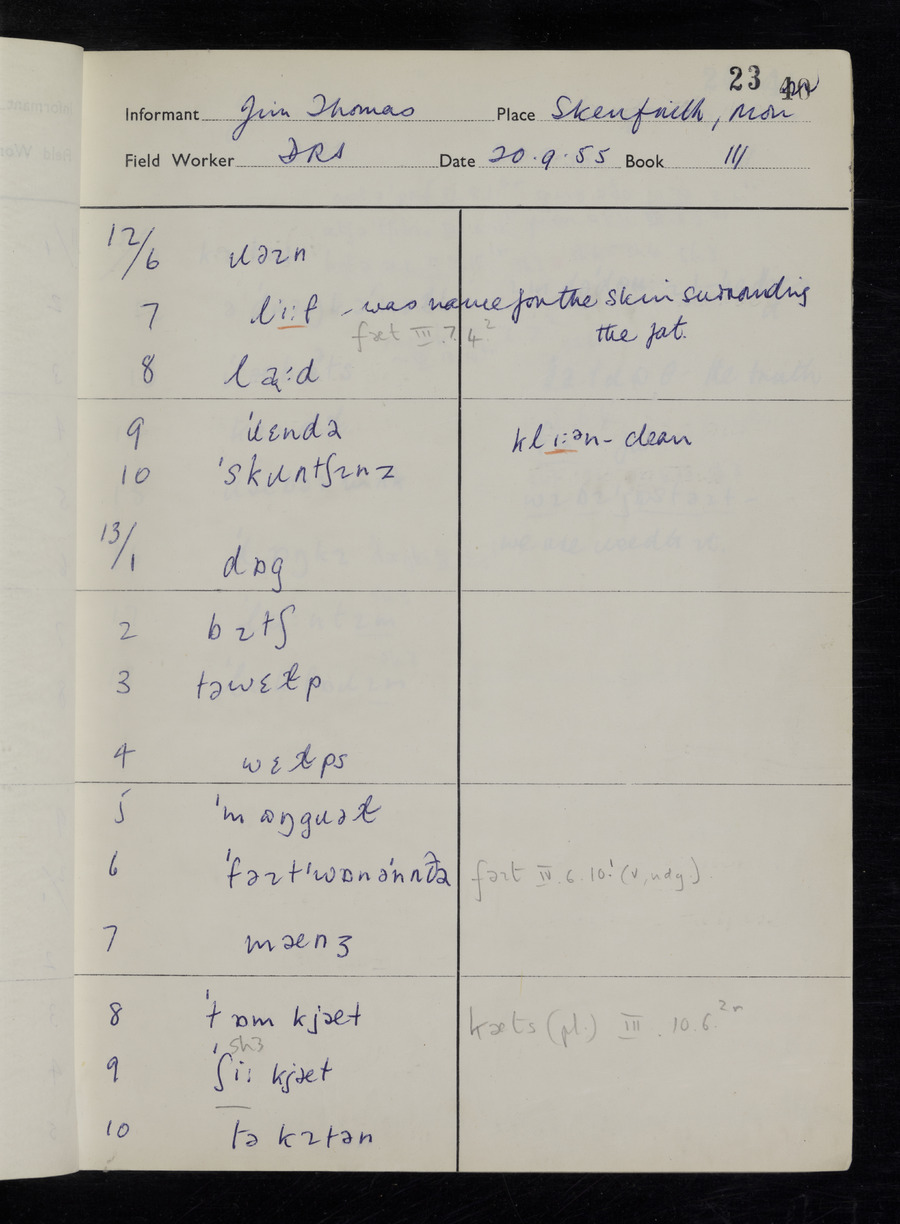 23 40
Informant Jim Thomas Place Skenfrith, Mon
Field Worker DRS Date 20.9.55 Book III
12/6 ɹəɪn
7 li:f - was name for the skin surrounding
fæt III.7.4² the fat.
8 læ:d
9 'ɹɛndə klɪ:ən - clean
10 'skɹʌntʃɪnz
13/1 dɒg
2 bɪtʃ
3 təwɛɫp
4 wɛɫps
5 'mɒŋgɹəɫ
6 'fəɪt'wɒnə'nʌðə fəɪt IV.6.10¹ (v, ndg.)
7 mænʒ
8 'tɒm kjæt kæts (pl.) III.10.6²ⁿ
sh3
9 'ʃi: kjæt
10 tə kɪtən